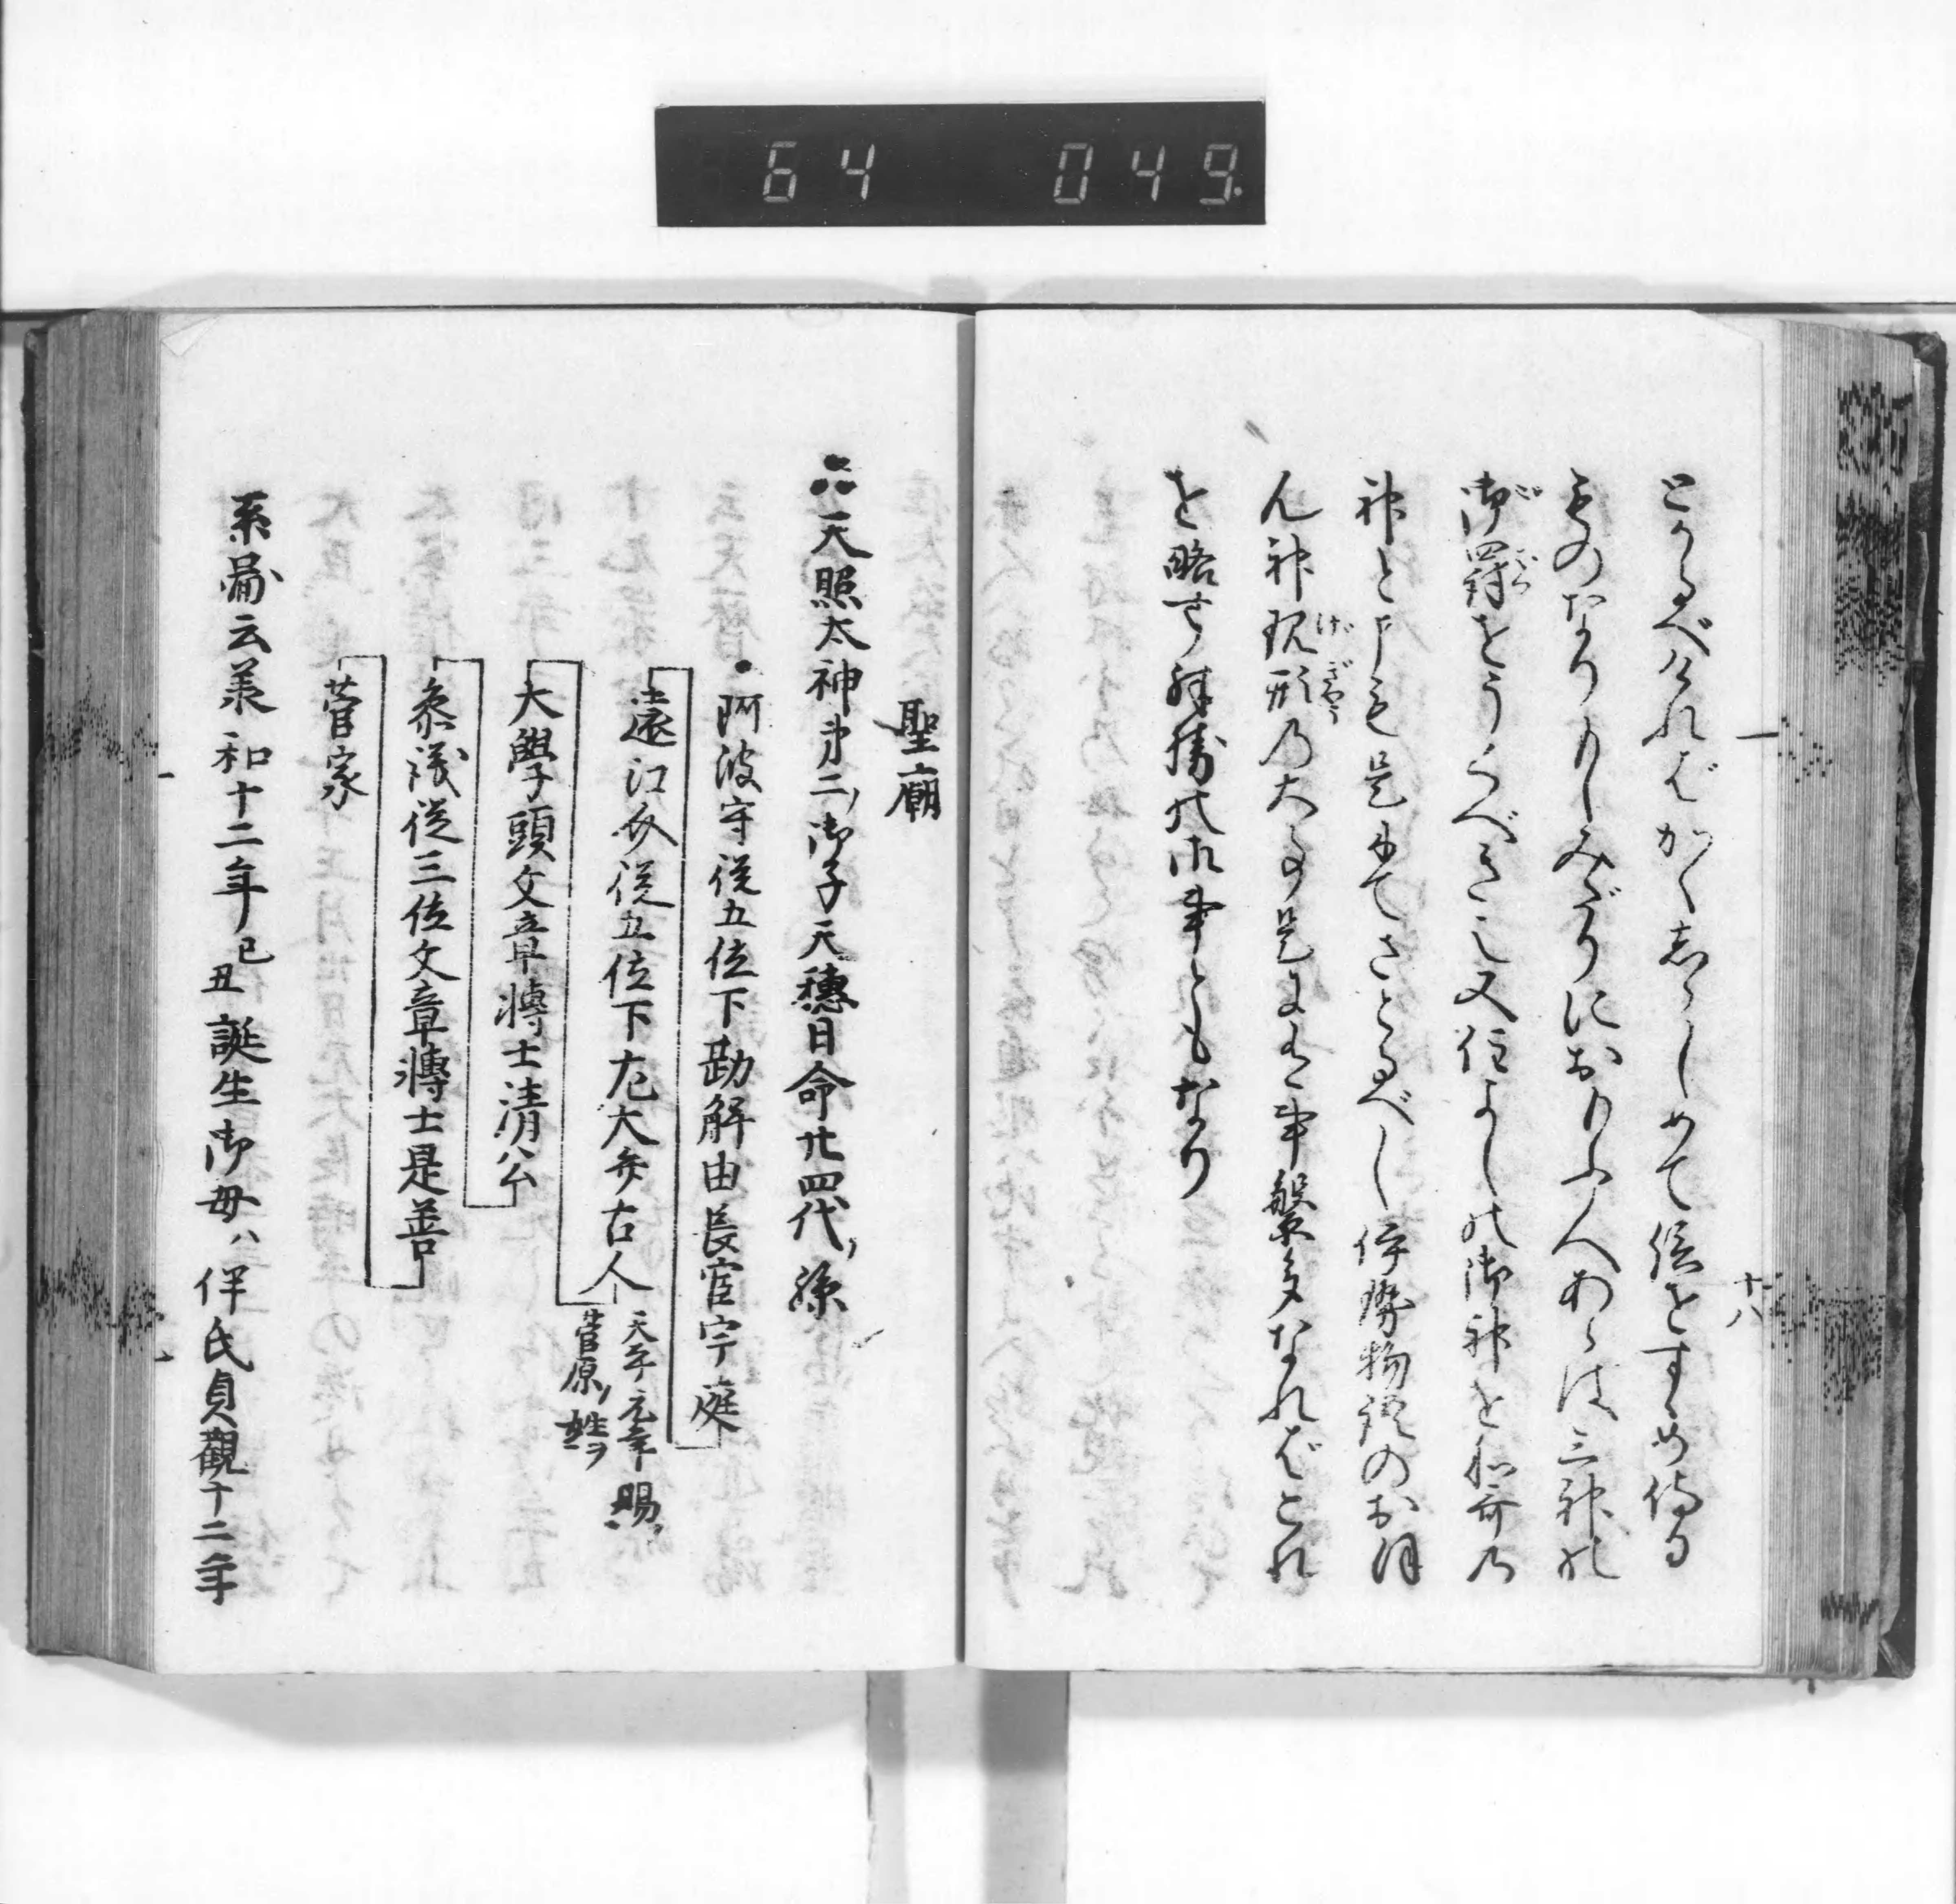 64 049
十八
とかるべければかくあらしめて信をすゝめ侍る
ものなりもしみだりにおもふ人あらは三神の
御罰をうくべきこと又住よしの御神を和哥の
神と申も是にてさとるべし伊勢物語のおほ
ん神現形の大事是による事繁多なればこれ
を略す殊勝の御事ともなり
ごばつ
げぎやう
聖廟
天照太神第二ノ御子天穂日命廿四代ノ孫
阿波守従五位下勘解由長官宇庭
遠江介従五位下左大弁古人
天平元年賜ノ
菅原ノ姓ヲ
大學頭文章博士清公
参議従三位文章博士是善
菅家
系圖云羨和十二年乙丑誕生御母ハ伴氏貞觀十二年